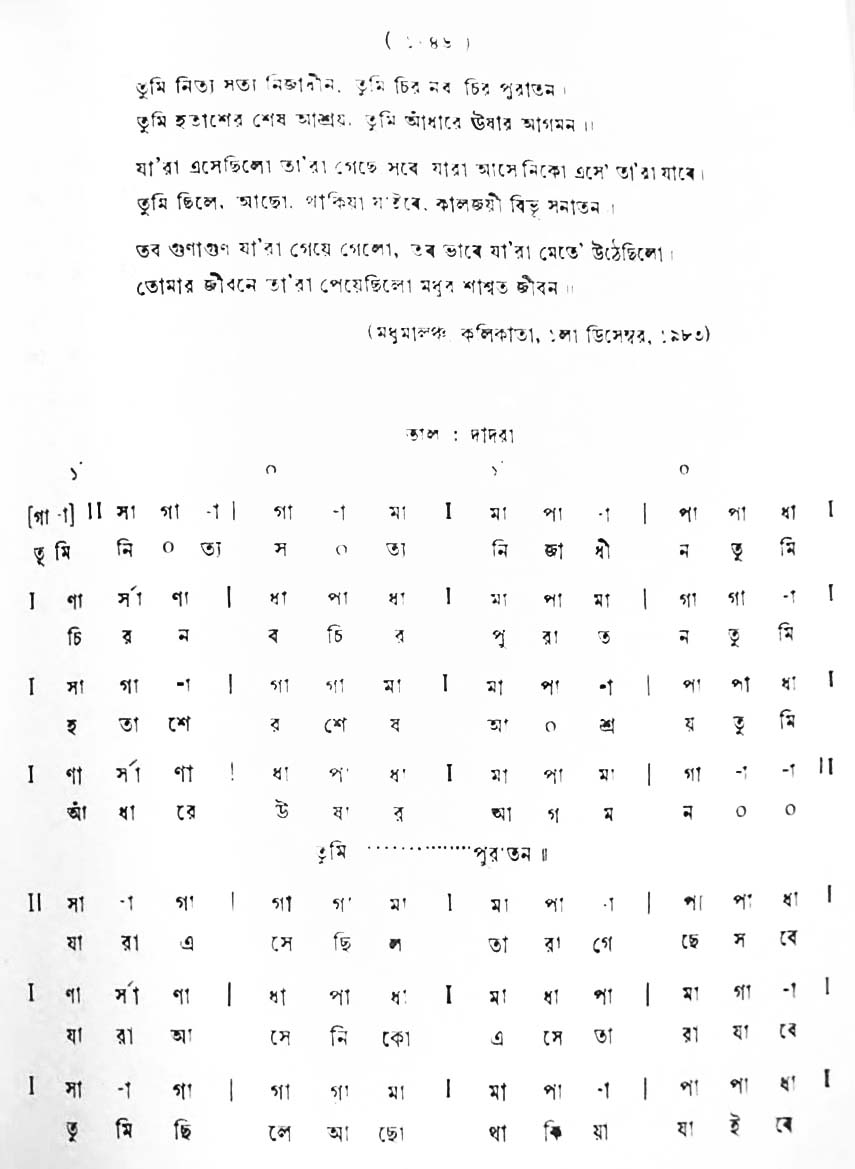 ( ১০৪৬ )
তুমি নিত্য সত্য নিজাধীন, তুমি চির নব চির পুরাতন।
তুমি হতাশের শেষ আশ্রয়, তুমি আঁধারে ঊষার আগমন।।
যা'রা এসেছিলো তা'রা গেছে সবে যারা আসেনিকো এসে' তা'রা যাবে।
তুমি ছিলে, আছো, থাকিয়া যাইবে, কালজয়ী বিভু সনাতন।
তব গুণাগুণ যা'রা গেয়ে গেলো, তব ভাবে যা'রা মেতে' উঠেছিলো।
তোমার জীবনে তা'রা পেয়েছিলো মধুর শাশ্বত জীবন॥
(মধুমালঞ্চ, কলিকাতা, ১লা ডিসেম্বর, ১৯৮৩)
তাল : দাদরা
১́ ০ ১́ ০
[গা -া] II সা গা -া | গা -া মা I মা পা -া | পা পা ধা I
তু মি নি ০ ত্য স ০ ত্য নি জা ধী ন তু মি
I ণা র্সা ণা | ধা পা ধা I মা পা মা | গা গা -া I
চি র ন ব চি র পু রা ত ন তু মি
I সা গা -া | গা গা মা I মা পা -া | পা পা ধা I
হ তা শে র শে ষ আ ০ শ্র য় তু মি
I ণা র্সা ণা | ধা পা ধা I মা পা মা | গা -া -া II
আঁ ধা রে উ ষা র আ গ ম ন ০ ০
তুমি ················পুরাতন॥
II সা -া গা | গা গা মা I মা পা -া | পা পা ধা I
যা রা এ সে ছি ল তা রা গে ছে স বে
I ণা র্সা ণা | ধা পা ধা I মা ধা পা | মা গা -া I
যা রা আ সে নি কো এ সে তা রা যা বে
I সা -া গা | গা গা মা I মা পা -া | পা পা ধা I
তু মি ছি লে আ ছো থা কি য়া যা ই বে